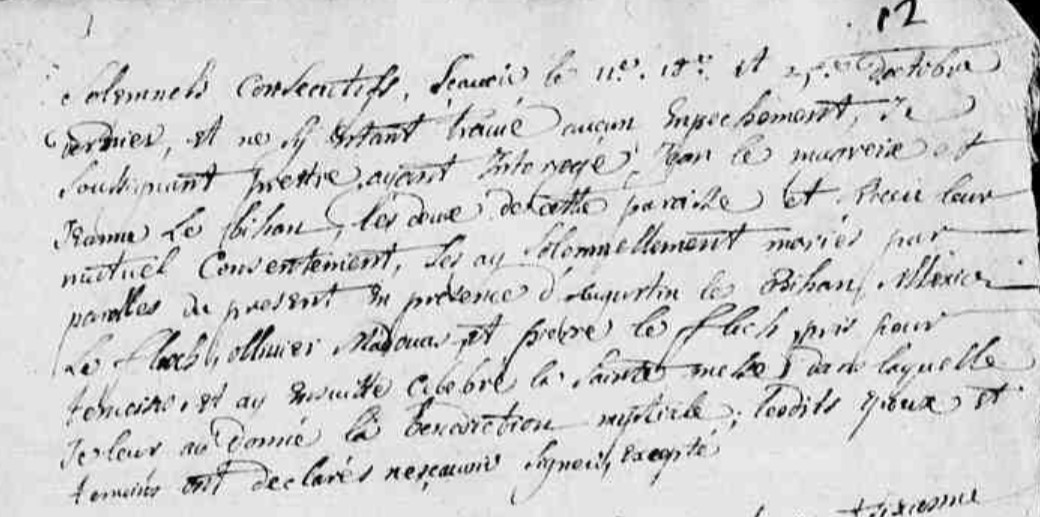 12
solemnels consecutifs, sçauoir le 11e. 18e. et 25e. d'octobre
dernier, et ne s'y estant trouué aucun Empechement, Je
soussignant prestre ayant Interrogé, Jean le et
Jeanne Le bihan, les deux de cette paroisse et Receu leur
mutuel Consentement, les ay solemnellement mariés par
parolles de present En presence d'Augustin le Bihan, Allexis
Le flech, ollivier Madouas, et pierre le flech, pris pour
temoins, et ay Ensuitte celebré la sainte messe dans laquelle
Je leur ai donné la benediction nuptiale; lesdits Epoux et
temoins ont declarés ne sçauoir signer, excepté